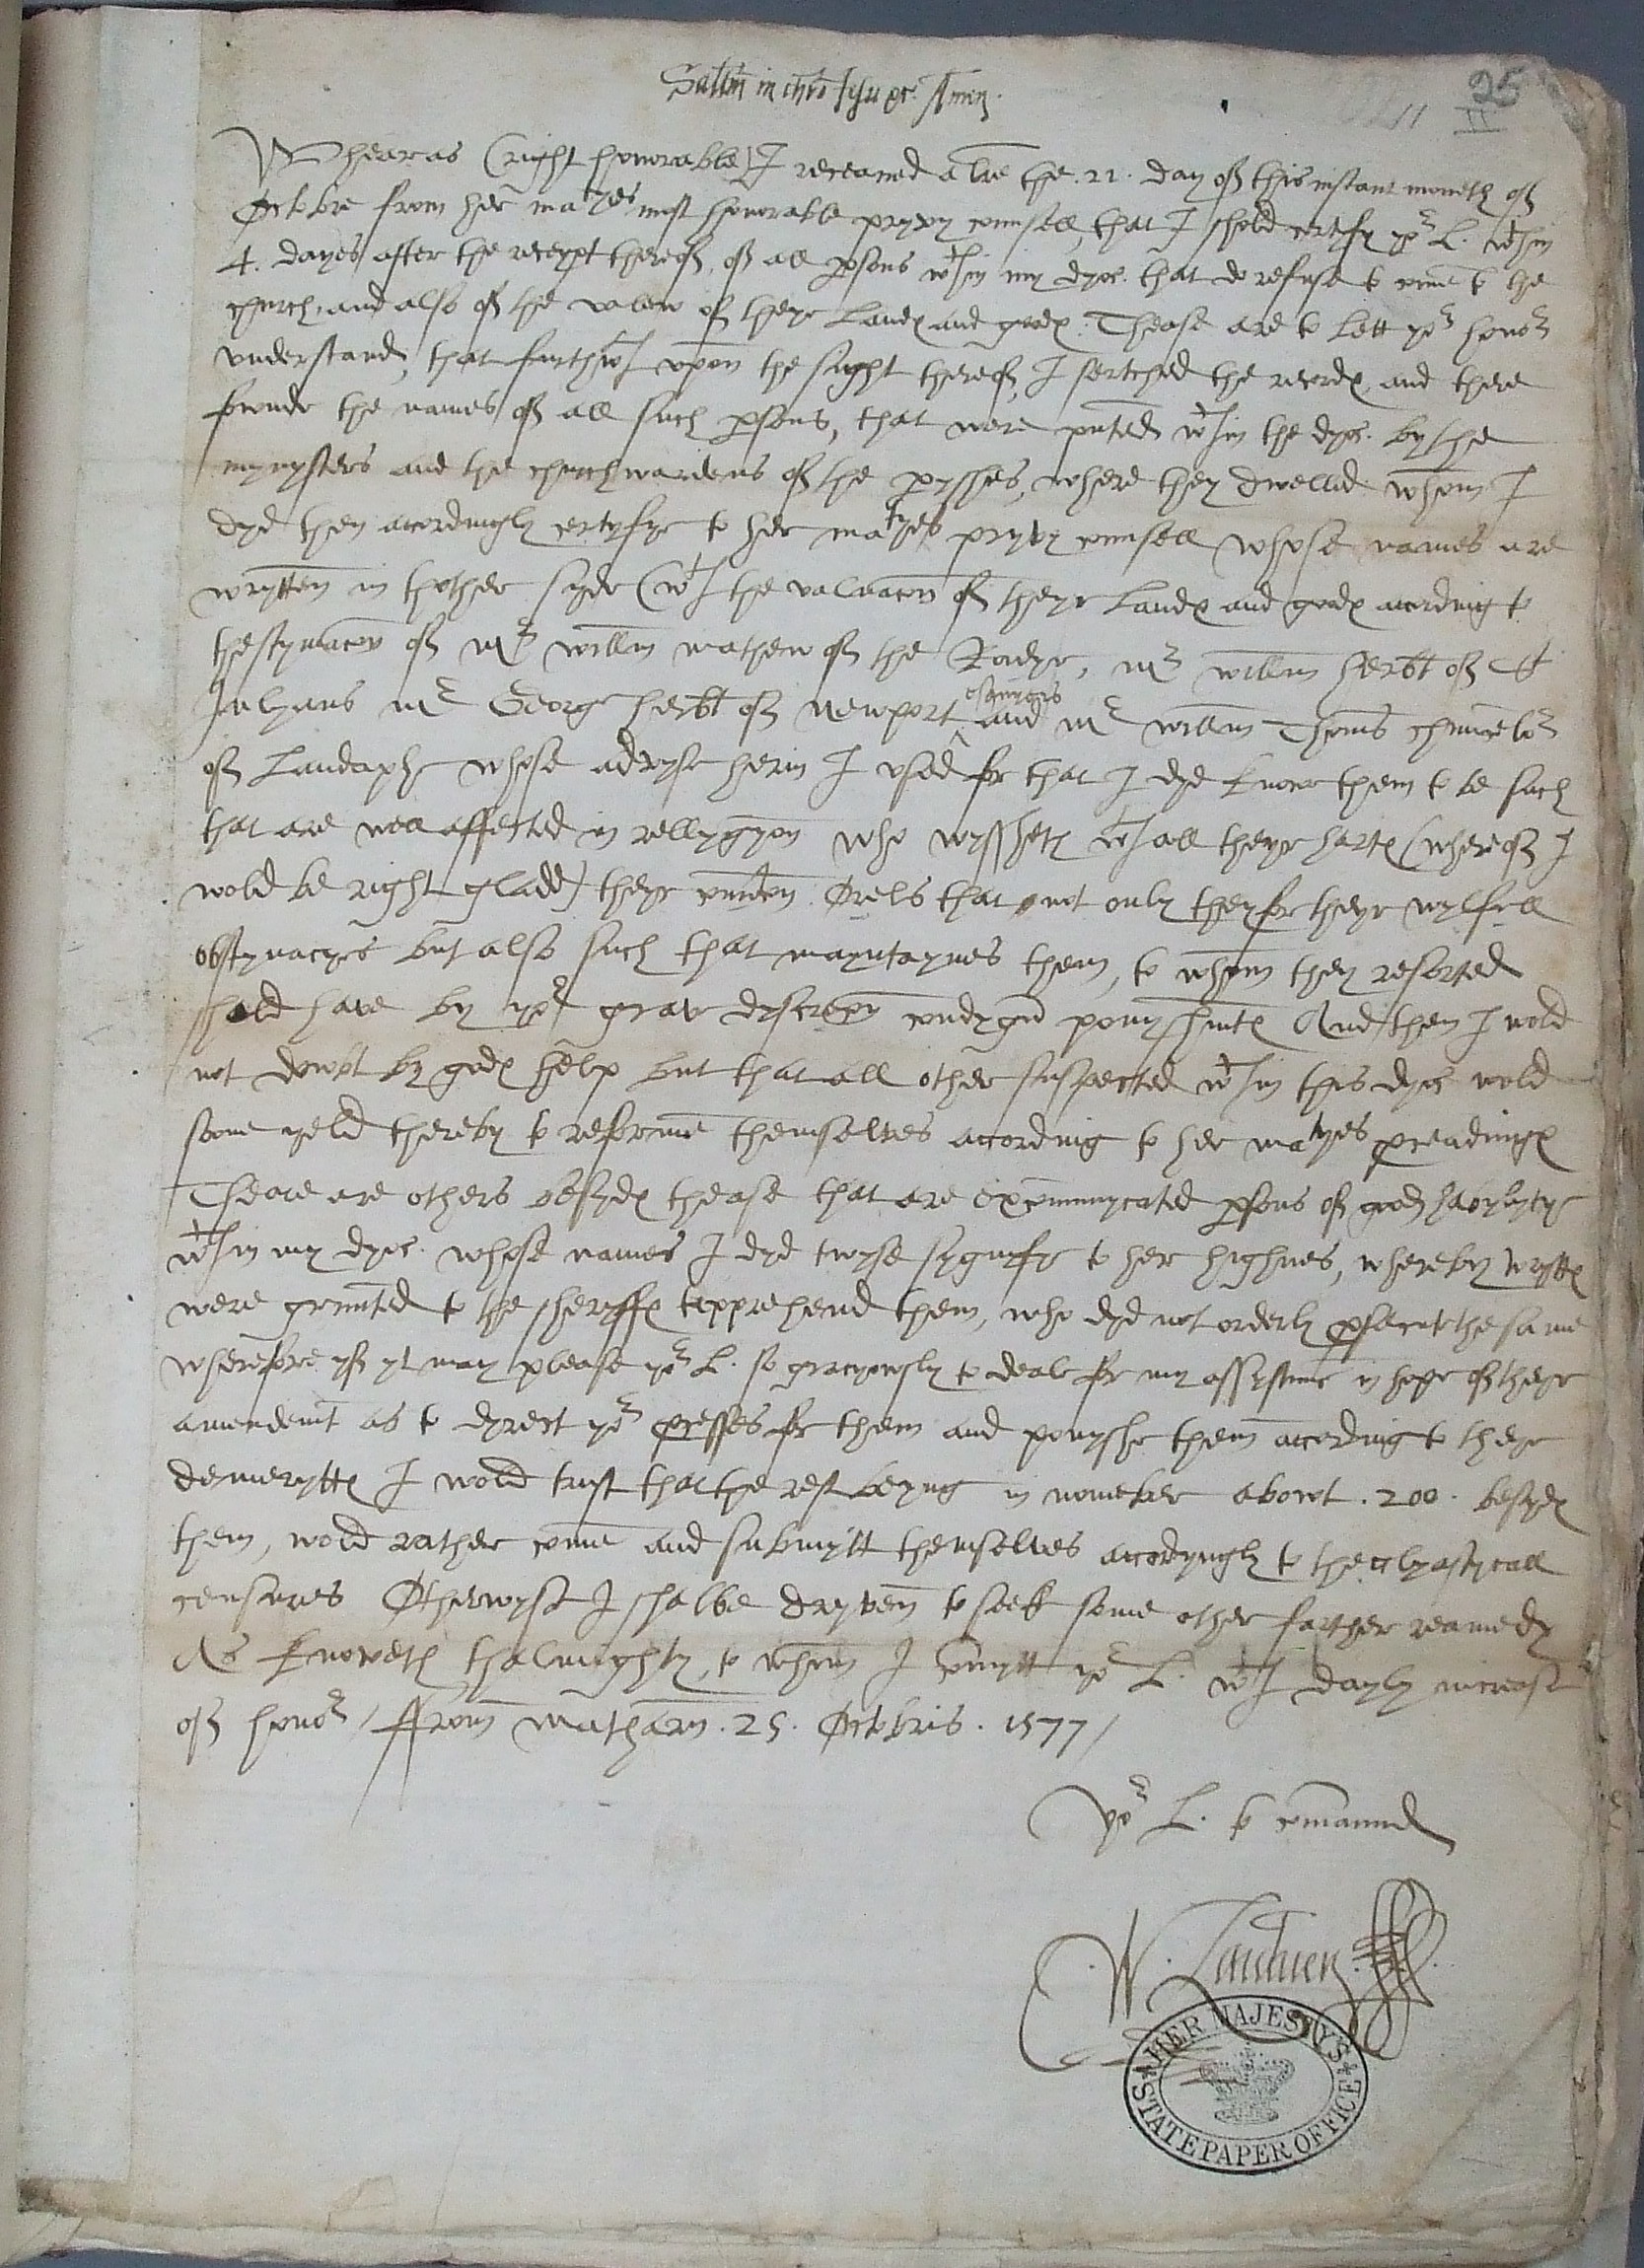 Sallm in chro Jesu &c. Amen.
25
11
II
Whearas (right honorable) I receaved a lre the .21. day off this instant moneth off
Octobre from her matyes most honorable pryvy counsell, that I shold certyfy yor L. wthin
4. dayes after the receypt thereoff, off all psons wthin my dyoc. that do refuse to come to the
church, and also off the valew off theyr Lands and goods: Thease are to lett yor honor
understand, that furthwt upon the syght thereoff, I sertched the records, and there
founde the names off all such psons, that were pnted wthin the dyoc. by the
mynysters and the churchwardens off the pysshes, where they dwelled whom I
dyd then acordingly certyfye to her matyes pryvy counsell whose names are
wrytten in thother syde (wt the valuacon off theyr Lands and goods acording to
thestymacon off Mr willm mathew off the Radyr, Mr willm herbt off St
Julyans Mr George herbt off Newport esquiers and Mr willm Thoms chauncelor
off Landaph, whose advyse herin I used for that I dyd knowe them to be such
that are well affected in rellygyon who wyssheth wt all theyr harts (whereoff I
wold be right gladd) theyr Orels that not only they for theyr wylfull
obstynacyes but also such that mayntaynes them, to whom they resorted
shold have by yor grave dyscrecon condygne ponyshmts And then I wold
not doubt by gods help but that all other suspected wthin this dyoc wold
soone yeld thereby to reforme themselves according to her matyes pceadings
Theare are others besyds thease that are excommunycated psons off good habylyty
wthin my dyoc. whose names I dyd twyse sygnyfye to her highnes, whereby wrytts
were graunted to the sheryffs tapprehend them, who dyd not orderly psecute the same
wherefore yff yt may please yor L. so gracyowsly to deale for my assystance in hope off theyr
amendemt as to dyrect yor pcesses for them and ponyshe them according to theyr
demerytts I wold trust that the rest beyng in nomeber abowt .200. besyds
them, wold rather come and submytt themselves accordyngly to thecclyastycall
censures Otherwyse I shalbe dryven to seek some other farther reamedy
As knoweth thalmyghty, to whom I comytt yor L. wt dayly increase
off honor / From Matharn .25. Octobris . 1577 /
Yor L. to comaund
W. Landaven
HER MAJESTY'S STATE PAPER OFFICE